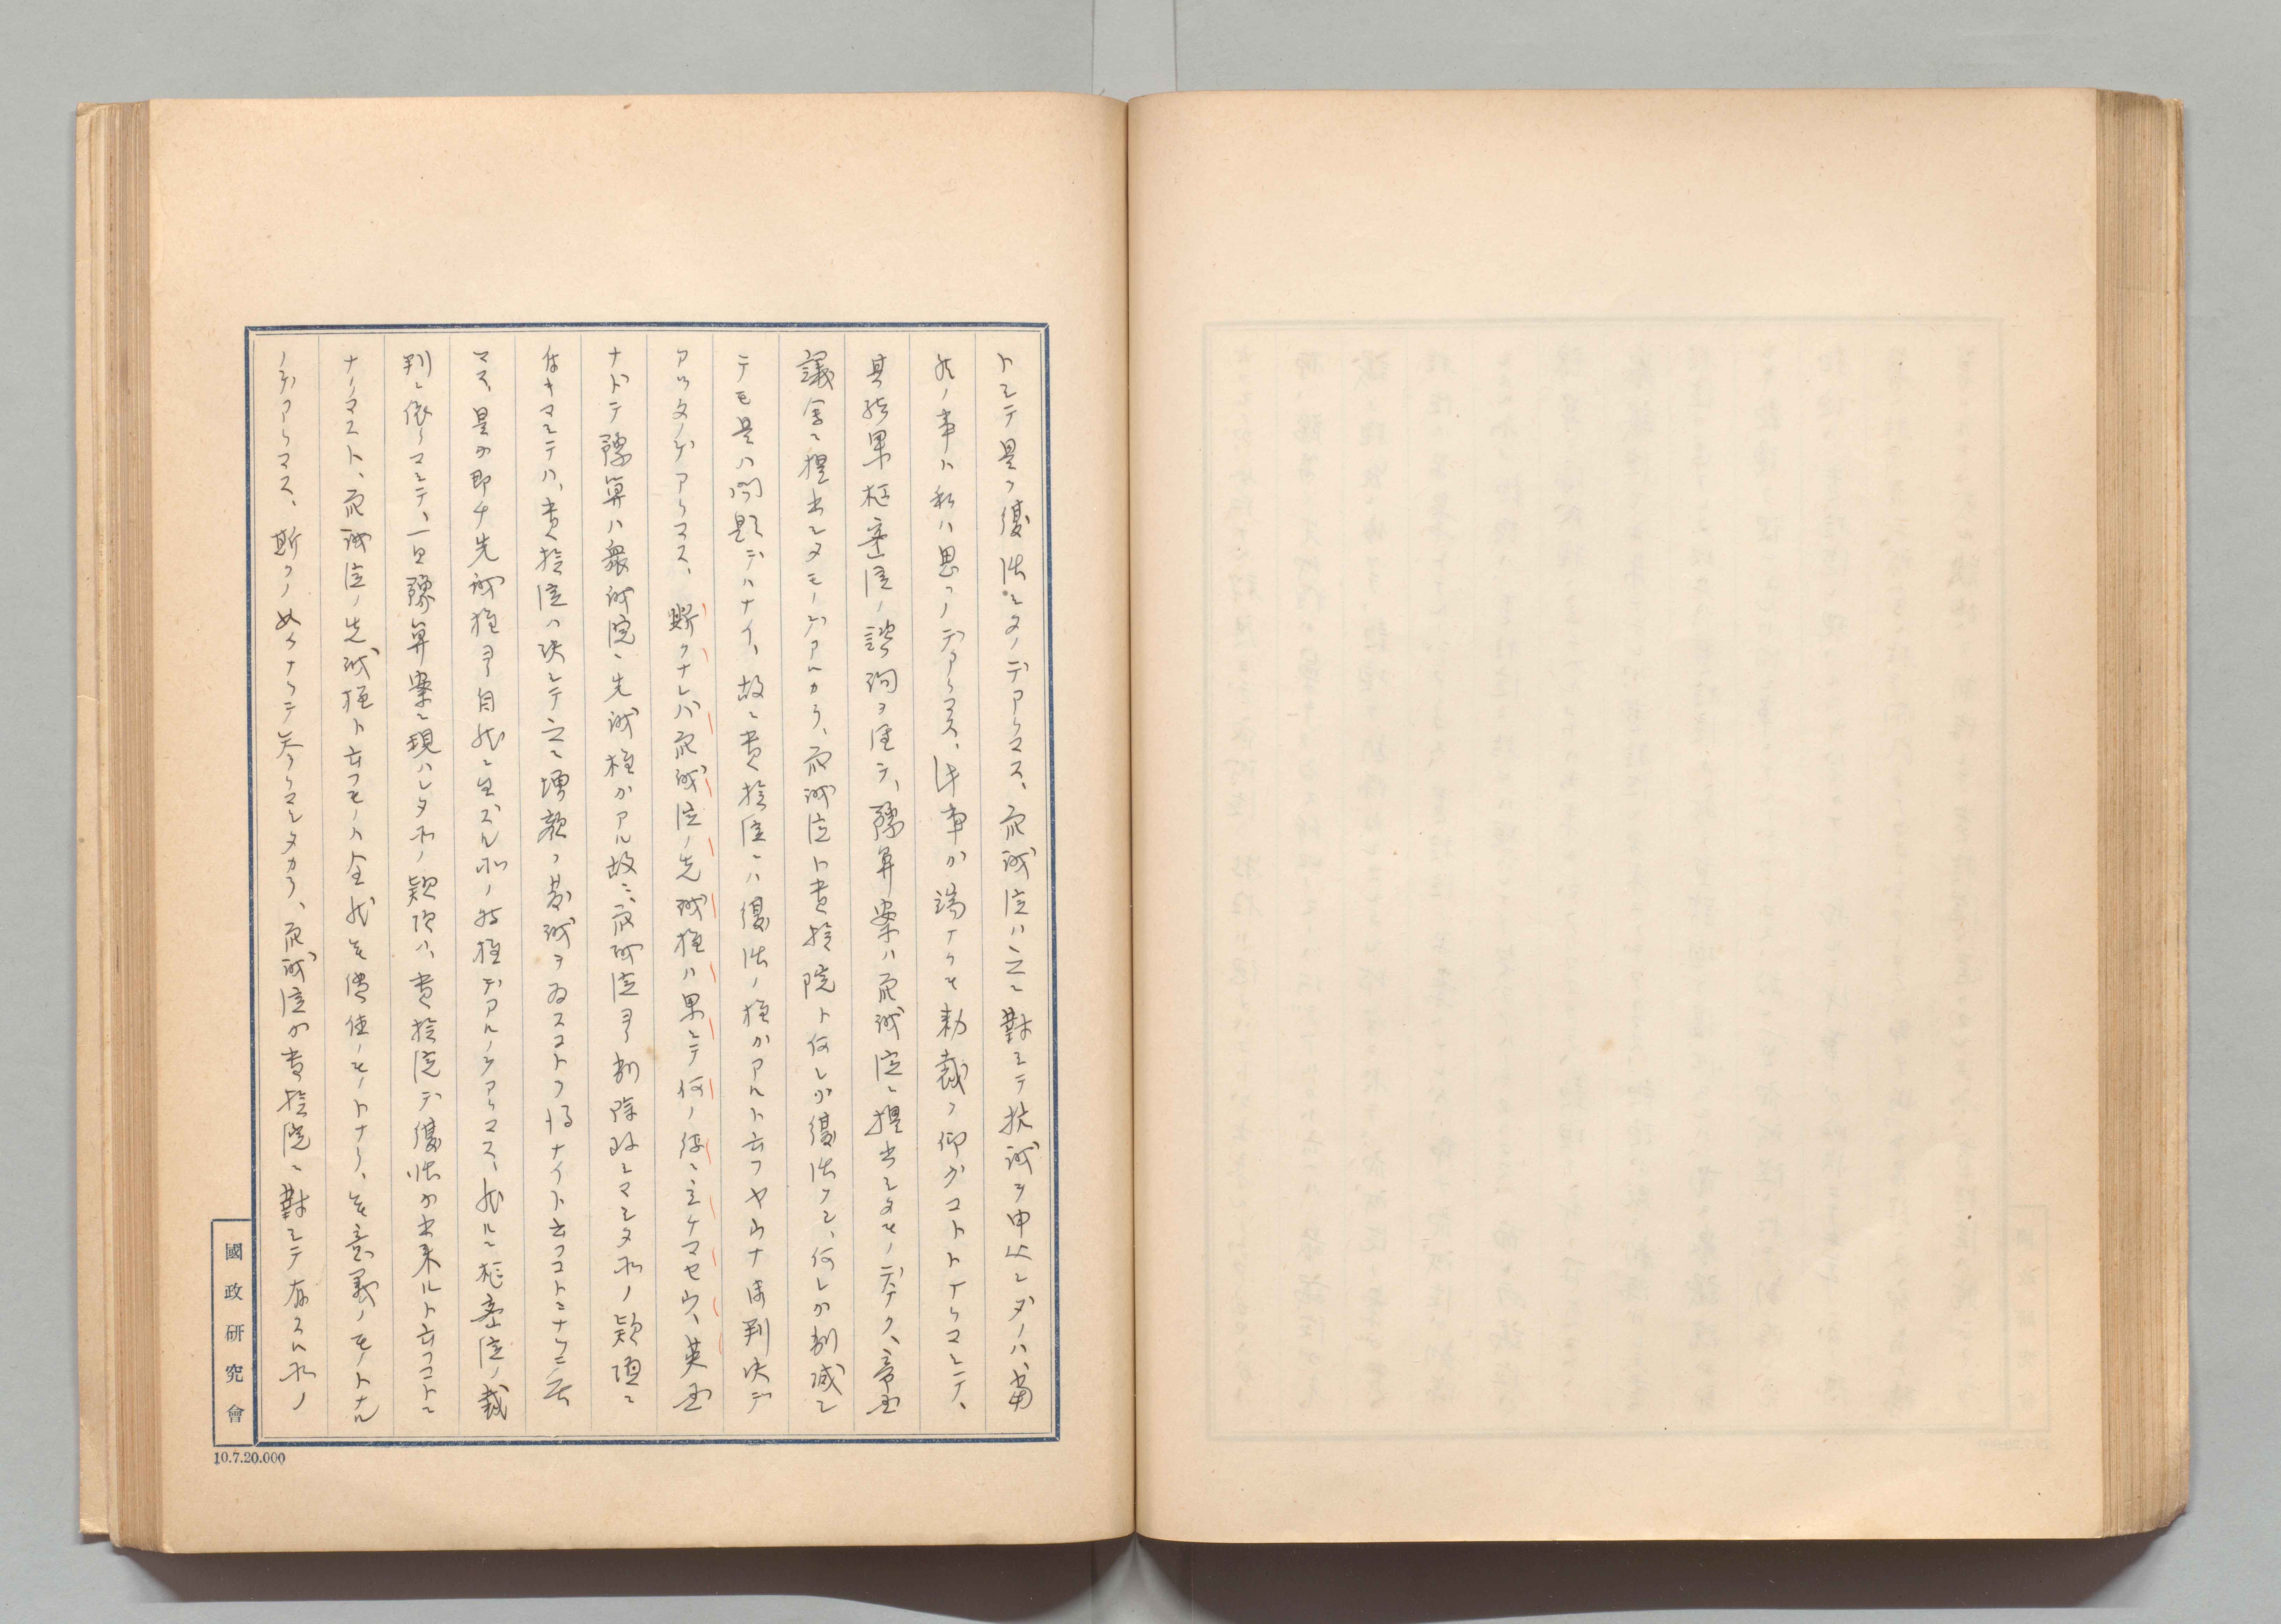 トシテ是ヲ復活シタノデアリマス、衆議院ハ之ニ對シテ抗議ヲ申込レダノハ、當
然ノ事ハ私ハ思フノデアリマス、此事カ端ナクモ勅裁ヲ仰グコトトナリマシテ、
其結果枢密院ノ諮詢ヲ経テ、豫算案ハ衆議院ニ提出シタモノデナク、帝国
議會ニ提出シタモノデアルカラ、衆議院ト貴族院ト何レカ復活フシ、何レカ削減シ
テモ是ハ問題デハナイ、故ニ貴族院ニハ復活ノ権カアルト云フヤウナ御判決デ
アツタノデアリマス、斯クナレバ衆議院ノ先議権ハ果シテ何ノ得ニ立ケマセウ、英国
ナドテ豫算ハ衆議院ニ先議権カアル故ニ、衆議院ヨリ削除致シマシタ所ノ款項ニ
付キマシテハ、貴族院ハ決シテ之ニ増額ノ発議ヲ為スコトヲ得ナイト云フコトニナツテ居
マス、是カ即チ先議権ヨリ自然ニ生ズル所ノ特権デアルノデアリマス、然ルニ枢密院ノ裁
判ニ依リマシテ、一旦豫算案ニ現ハレタ所ノ款項ハ、貴族院デ復活カ出来ルト云フコトニ
ナリマスト、衆議院ノ先議権ト云フモノハ全然無價値ノモノトナリ、無意義ノモノトナル
ノデアリマス、斯クノ如クナツテ参リマシタカラ、衆議院カ貴族院ニ對シテ有スル所ノ
國政研究會
10.7.20.000